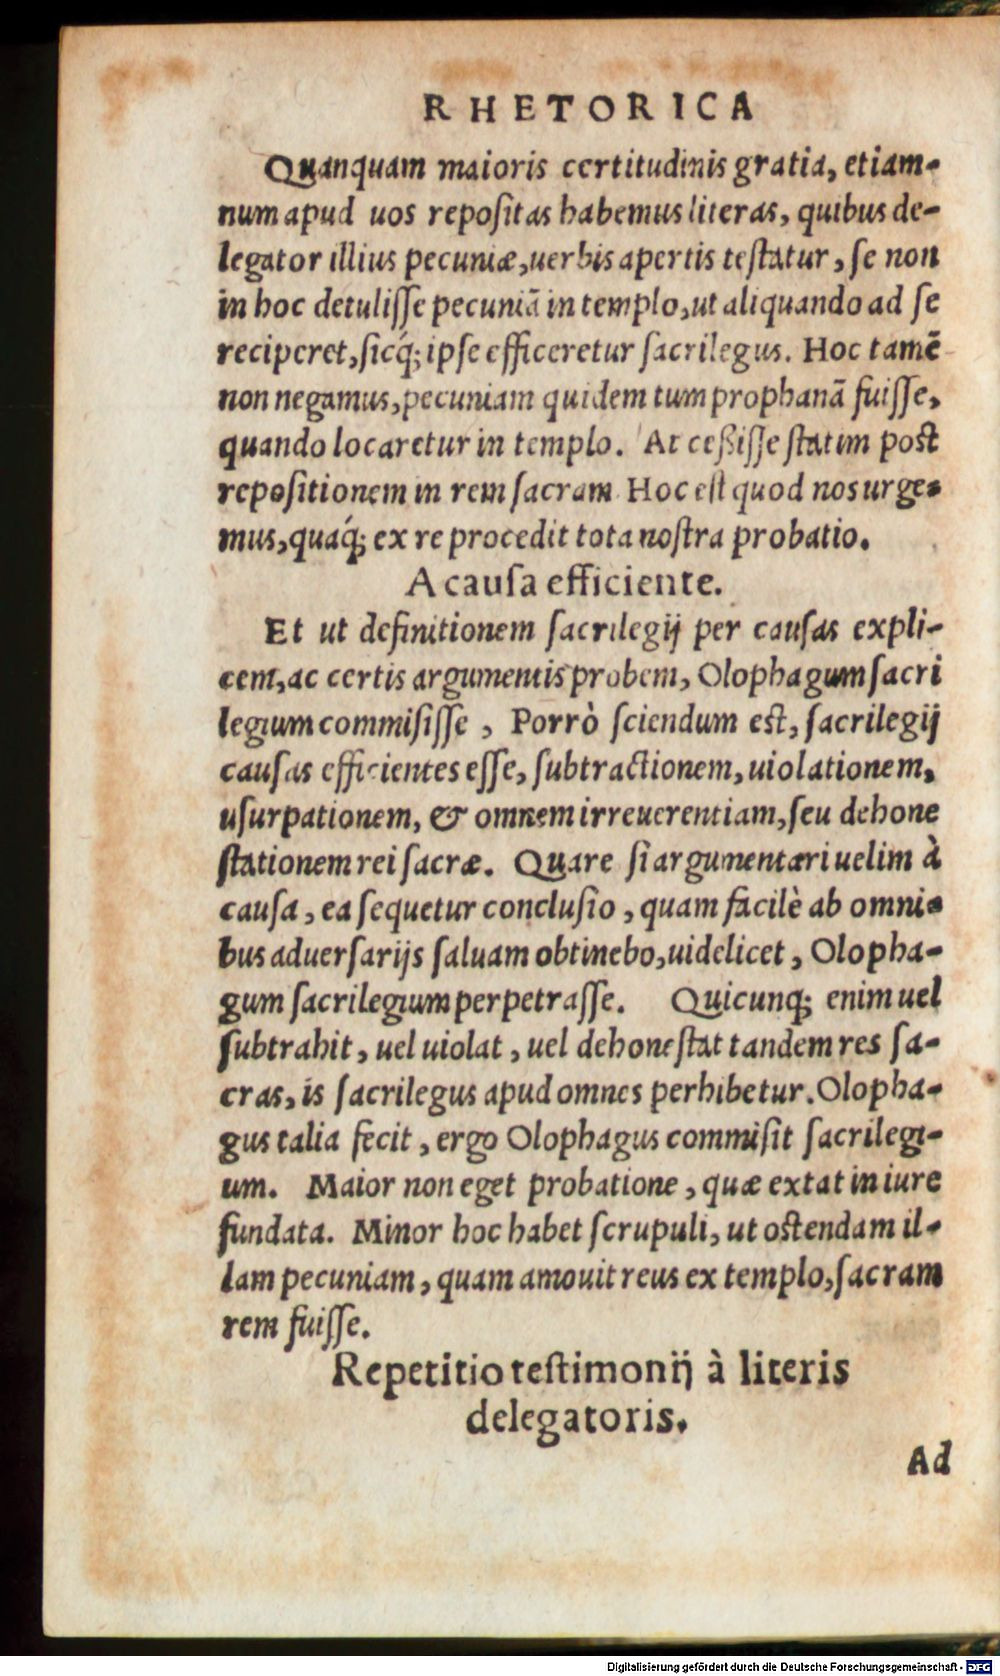 RHETORICA
Quanquam maioris certitudinis gratia, etiam-
num apud uos repositas habemus literas, quibus de-
legator illius pecuniæ, uerbis apertis testatur, se non
in hoc detulisse pecuniā in templo, ut aliquando ad se
reciperet, sicq́; ipse efficeretur sacrilegus. Hoc tamē
non negamus, pecuniam quidem tum prophanā fuisse,
quando locaretur in templo. At ceßisse statim post
repositionem in rem sacram. Hoc est quod nos urge-
mus, quaq́; ex re procedit tota nostra probatio.
A causa efficiente.
Et ut definitionem sacrilegij per causas expli-
cem, ac certis argumentis probem, Olophagum sacri
legium commisisse, Porrò sciendum est, sacrilegij
causas efficientes esse, subtractionem, uiolationem,
usurpationem, & omnem irreuerentiam, seu dehone
stationem rei sacræ. Quare si argumentari uelim à
causa, ea sequetur conclusio, quam facilè ab omni-
bus aduersarijs saluam obtinebo, uidelicet, Olopha-
gum sacrilegium perpetrasse. Quicunq; enim uel
subtrahit, uel uiolat, uel dehonestat tandem res sa-
cras, is sacrilegus apud omnes perhibetur. Olopha-
gus talia fecit, ergo Olophagus commisit sacrilegi-
um. Maior non eget probatione, quæ extat in iure
fundata. Minor hoc habet scrupuli, ut ostendam il-
lam pecuniam, quam amouit reus ex templo, sacram
rem fuisse.
Repetitio testimonij à literis
delegatoris.
Ad
Digitalisierung gefördert durch die Deutsche Forschungsgemeinschaft - DFG